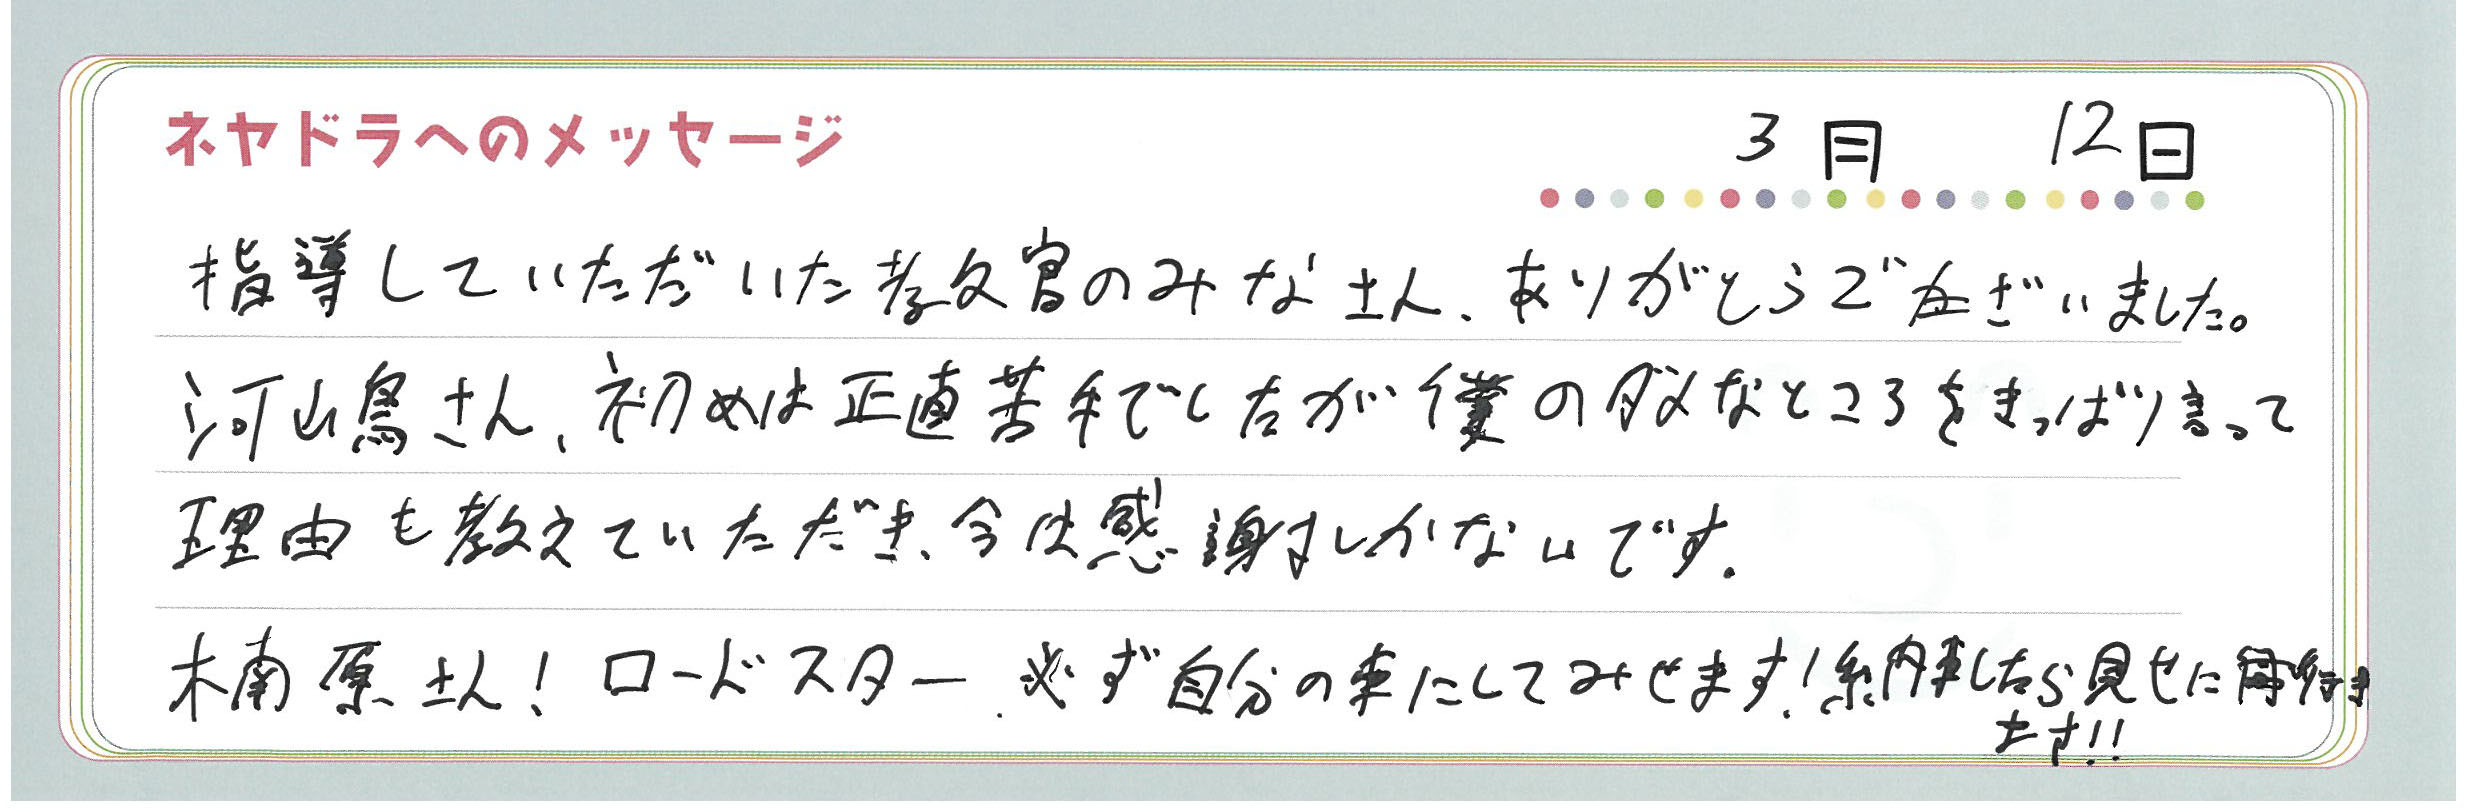 ネヤドラへのメッセージ
3月 12日
指導していただいた教官のみなさん、ありがとうございました。
河嶌さん、初めは正直苦手でしたが僕のダメなところをきっぱり言って
理由も教えていただき、今は感謝しかないです。
楠原さん!ロードスター、必ず自分の車にしてみせます!納車したら見せに行き
ます!!